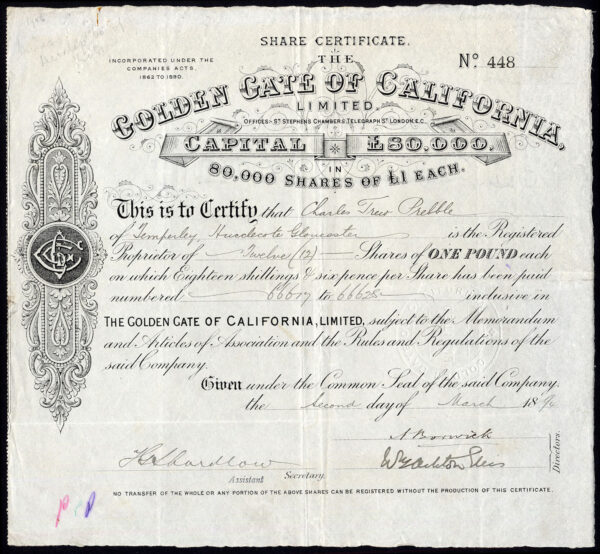 SHARE CERTIFICATE.
INCORPORATED UNDER THE
COMPANIES ACTS,
1862 TO 1880.
THE
Nº 448
GOLDEN GATE OF CALIFORNIA,
LIMITED.
OFFICES:- ST STEPHENS CHAMBERS, TELEGRAPH ST LONDON, E.C.
CAPITAL £80,000,
IN
80,000 SHARES OF £1 EACH.
This is to Certify that Charles Trew Prebble
of Temperley Hucclecote Gloucester is the Registered
Proprietor of Twelve (12) Shares of ONE POUND each
on which Eighteen shillings & sixpence per Share has been paid
numbered 66617 to 66628 inclusive in
THE GOLDEN GATE OF CALIFORNIA, LIMITED, subject to the Memorandum
and Articles of Association and the Rules and Regulations of the
said Company.
Given under the Common Seal of the said Company,
the Second day of March 18
Directors.
Assistant Secretary.
NO TRANSFER OF THE WHOLE OR ANY PORTION OF THE ABOVE SHARES CAN BE REGISTERED WITHOUT THE PRODUCTION OF THIS CERTIFICATE.